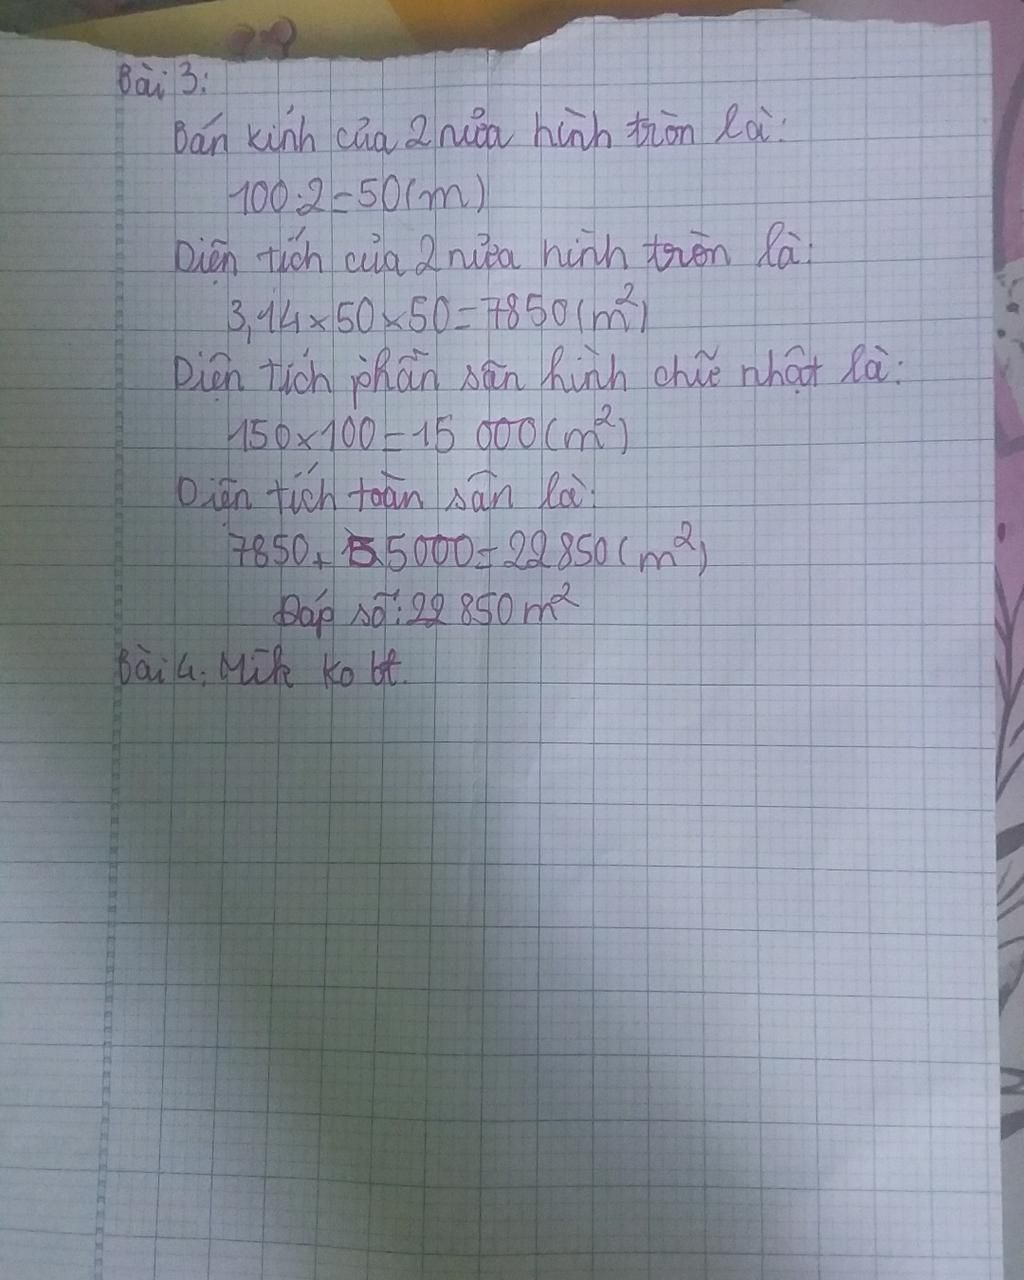 Bài 3:
Bán kính của 2 nửa hình tròn là:
100:2=50(m)
Diện tích của 2 nửa hình tròn là:
3,14×50×50=7850(m²)
Diện tích phần sân hình chữ nhật là:
150×100=15 000(m²)
Diện tích toàn sân là:
7850+15000=22850(m²)
Đáp số:22 850m²
Bài 4: Mik ko bt.